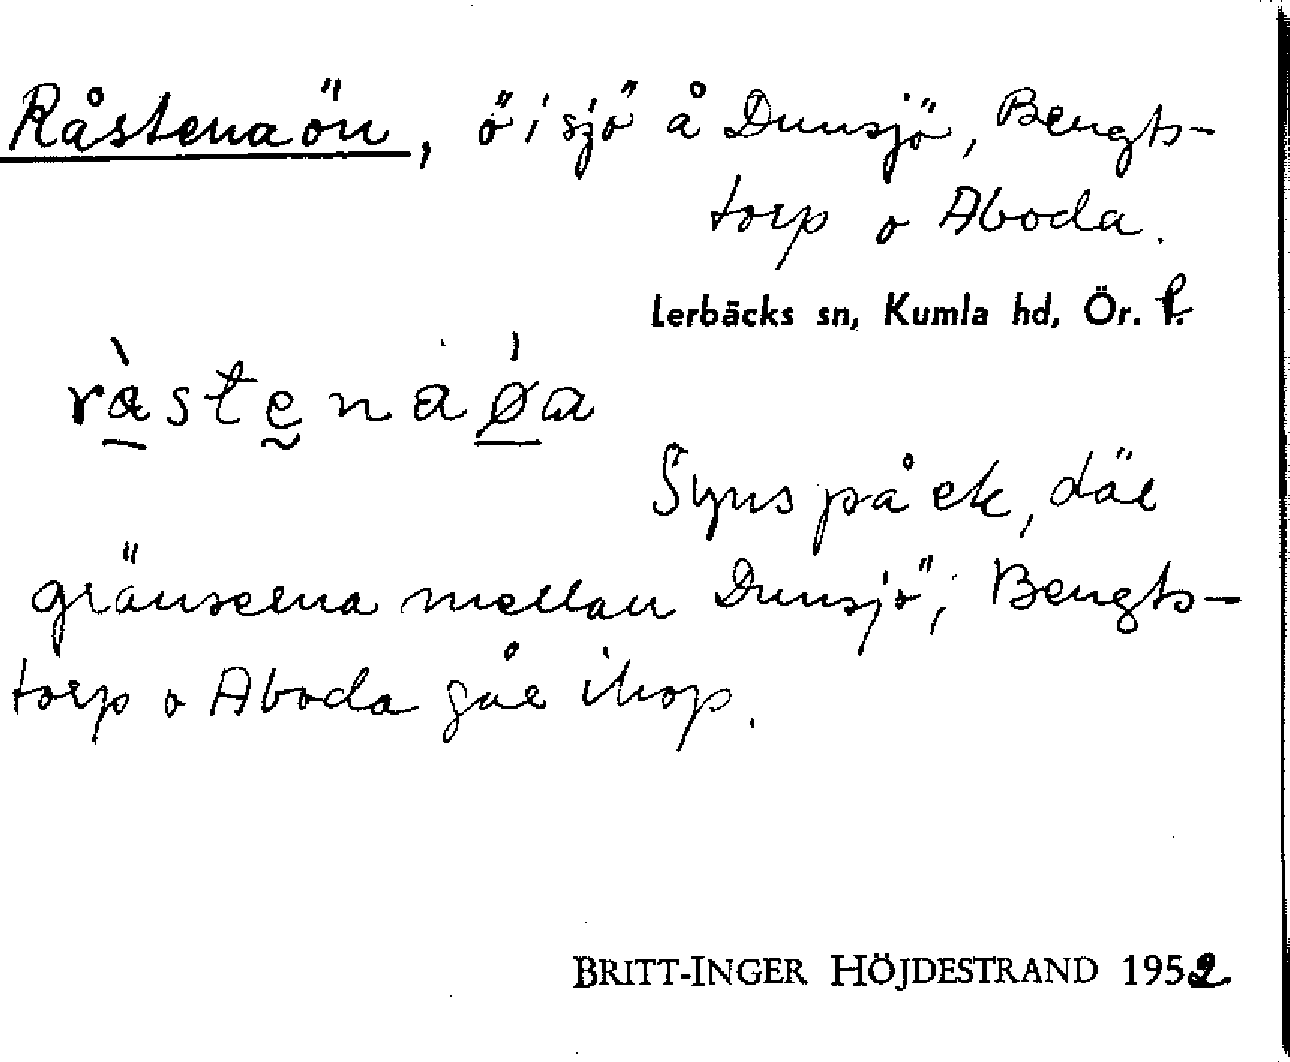 Råstenaön, ö i sjö å Dunsjö, Bengts-
torp o Aboda.
Lerbäcks sn, Kumla hd, Ör. l.
råstenaøa
Syns på ek, där
gränserna mellan Dunsjö, Bengts-
torp o Aboda går ihop.
BRITT-INGER HÖJDESTRAND 1952